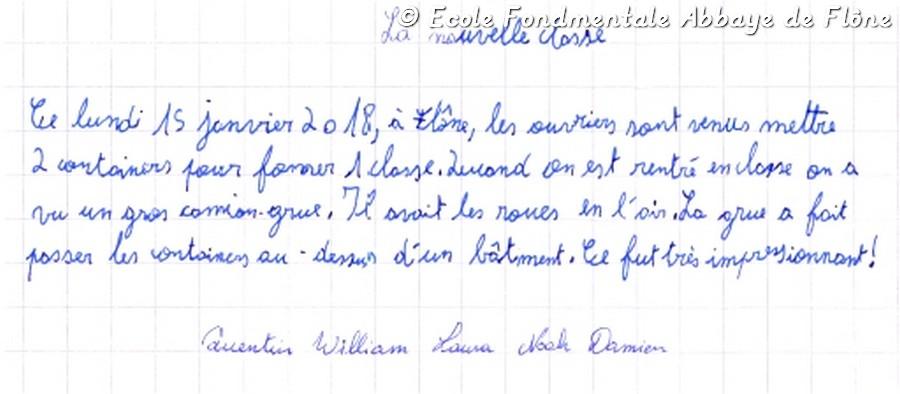 © Ecole Fondmentale Abbaye de Flône
La nouvelle classe
Ce lundi 15 janvier 2018, à Flône, les ouvriers sont venus mettre
2 containers pour former 1 classe. Quand on est rentré en classe on a
vu un gros camion-grue. Il avait les roues en l'air. La grue a fait
passer les containers au-dessus d'un bâtiment. Ce fut très impressionnant!
Quentin William Laura Noah Damien